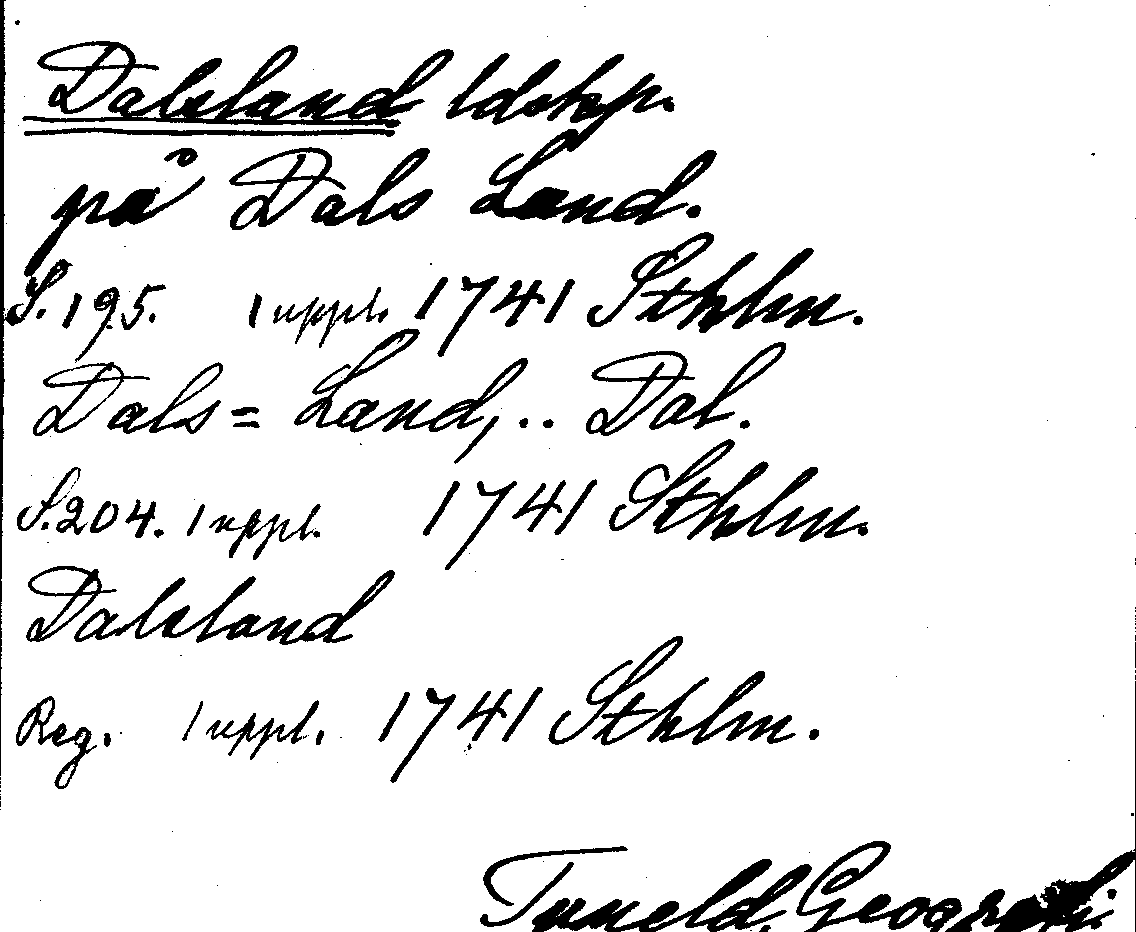 Dalsland ldskp.
på Dals Land.
S. 195. 1 uppl. 1741 Sthlm.
Dals= Land, .. Dal.
S. 204. 1 uppl. 1741 Sthlm.
Dalsland
Reg. 1 uppl. 1741 Sthlm.
Tuneld, Geografi